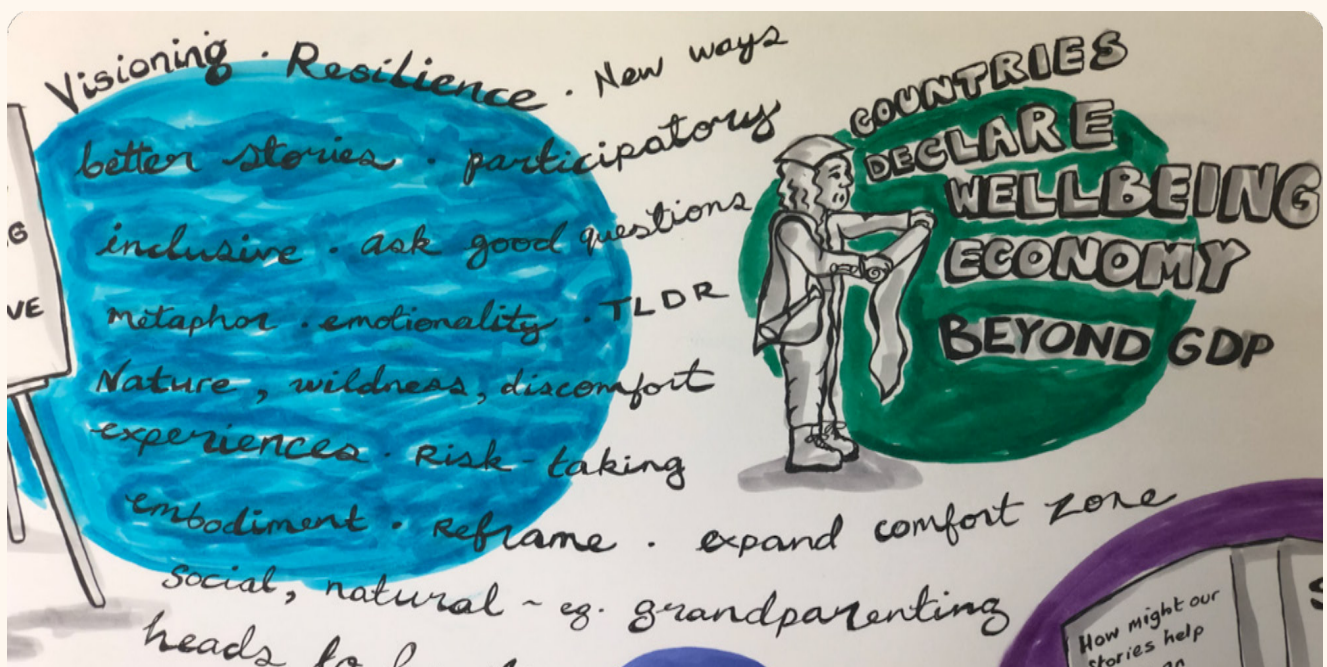 Visioning · Resilience · New ways
better stories · participatory
inclusive · ask good questions
metaphor · emotionality · TLDR
Nature, wildness, discomfort
experiences · Risk-taking
embodiment · Reframe · expand comfort zone
social, natural ~ eg. grandparenting
heads to
COUNTRIES
DECLARE
WELLBEING
ECONOMY
BEYOND GDP
G
VE
How might our
stories help